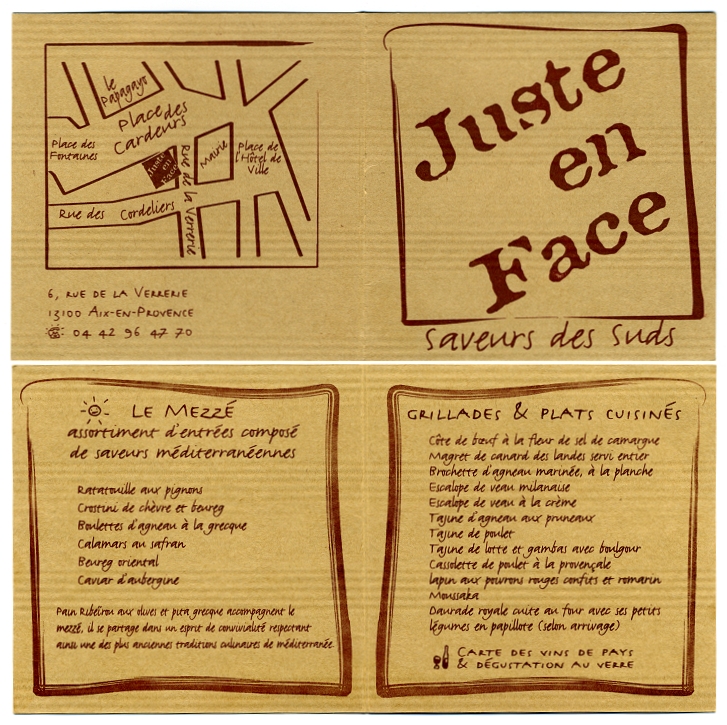 le
Papagayo
Place des
Cardeurs
Place des
Fontaines
Juste
en
Face
Rue de la Verrerie
Mairie
Place de
l'Hôtel de
Ville
Rue des Cordeliers
6, rue de la Verrerie
13100 Aix-en-Provence
04 42 96 47 70
Juste
en
Face
saveurs des suds
Le Mezzé
assortiment d'entrées composé
de saveurs méditerranéennes
Ratatouille aux pignons
Crostini de chèvre et beureg
Boulettes d'agneau à la grecque
Calamars au safran
Beureg oriental
Caviar d'aubergine
Pain Ribeïrou aux olives et pita grecque accompagnent le
mezzé, il se partage dans un esprit de convivialité respectant
ainsi une des plus anciennes traditions culinaires de méditerranée.
Grillades & plats cuisinés
Côte de bœuf à la fleur de sel de camargue
Magret de canard des landes servi entier
Brochette d'agneau marinée, à la planche
Escalope de veau milanaise
Escalope de veau à la crème
Tajine d'agneau aux pruneaux
Tajine de poulet
Tajine de lotte et gambas avec boulgour
Cassolette de poulet à la provençale
lapin aux poivrons rouges confits et romarin
Moussaka
Daurade royale cuite au four avec ses petits
légumes en papillote (selon arrivage)
Carte des vins de pays
& dégustation au verre